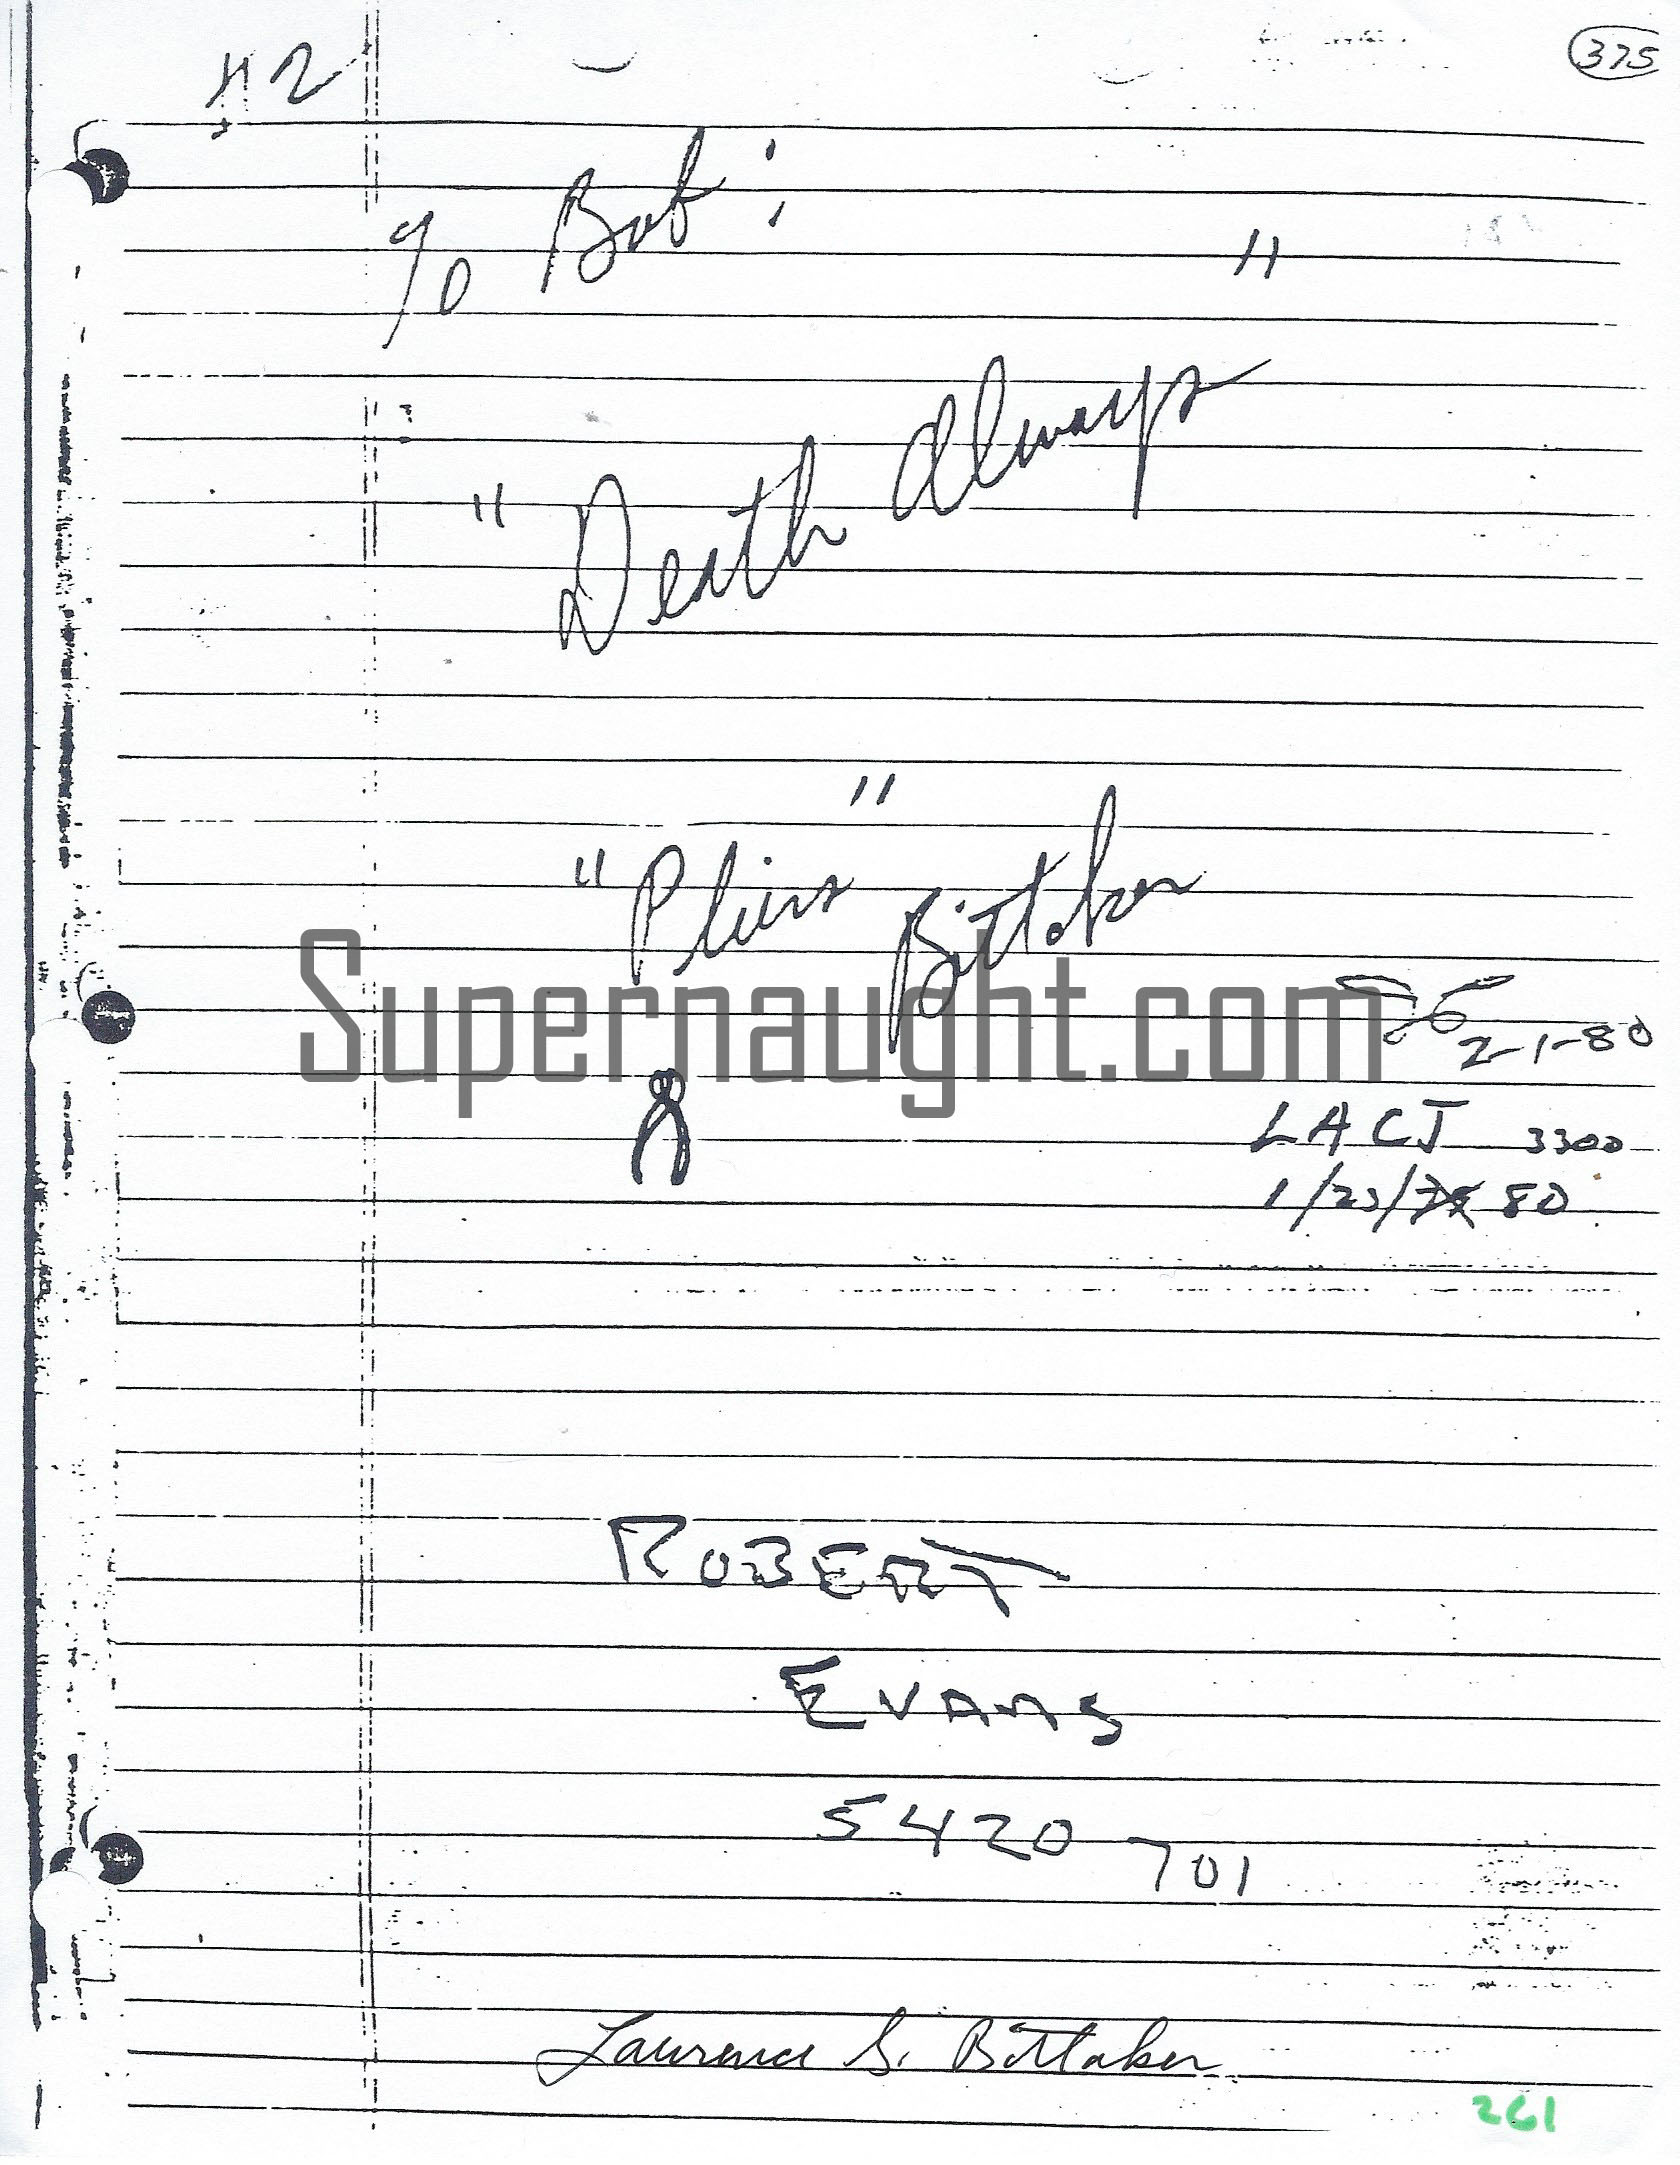 375
#2
% Bob:
"Death Always"
"Pliers" Bittaker
Supernaught.com
2-1-80
LACJ 3300
1/23/ 80
ROBERT
EVANS
5420 701
Lawrence S. Bittaker
261